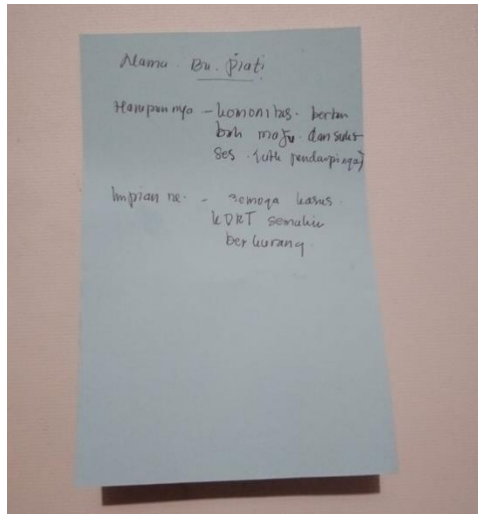 Nama . Bu. Piati
Harapannya - komonitas. bertam
bah maju dan suk
ses . (utk pendampinga)
Impian ne. - Semoga kasus.
KDRT semakin
berkurang